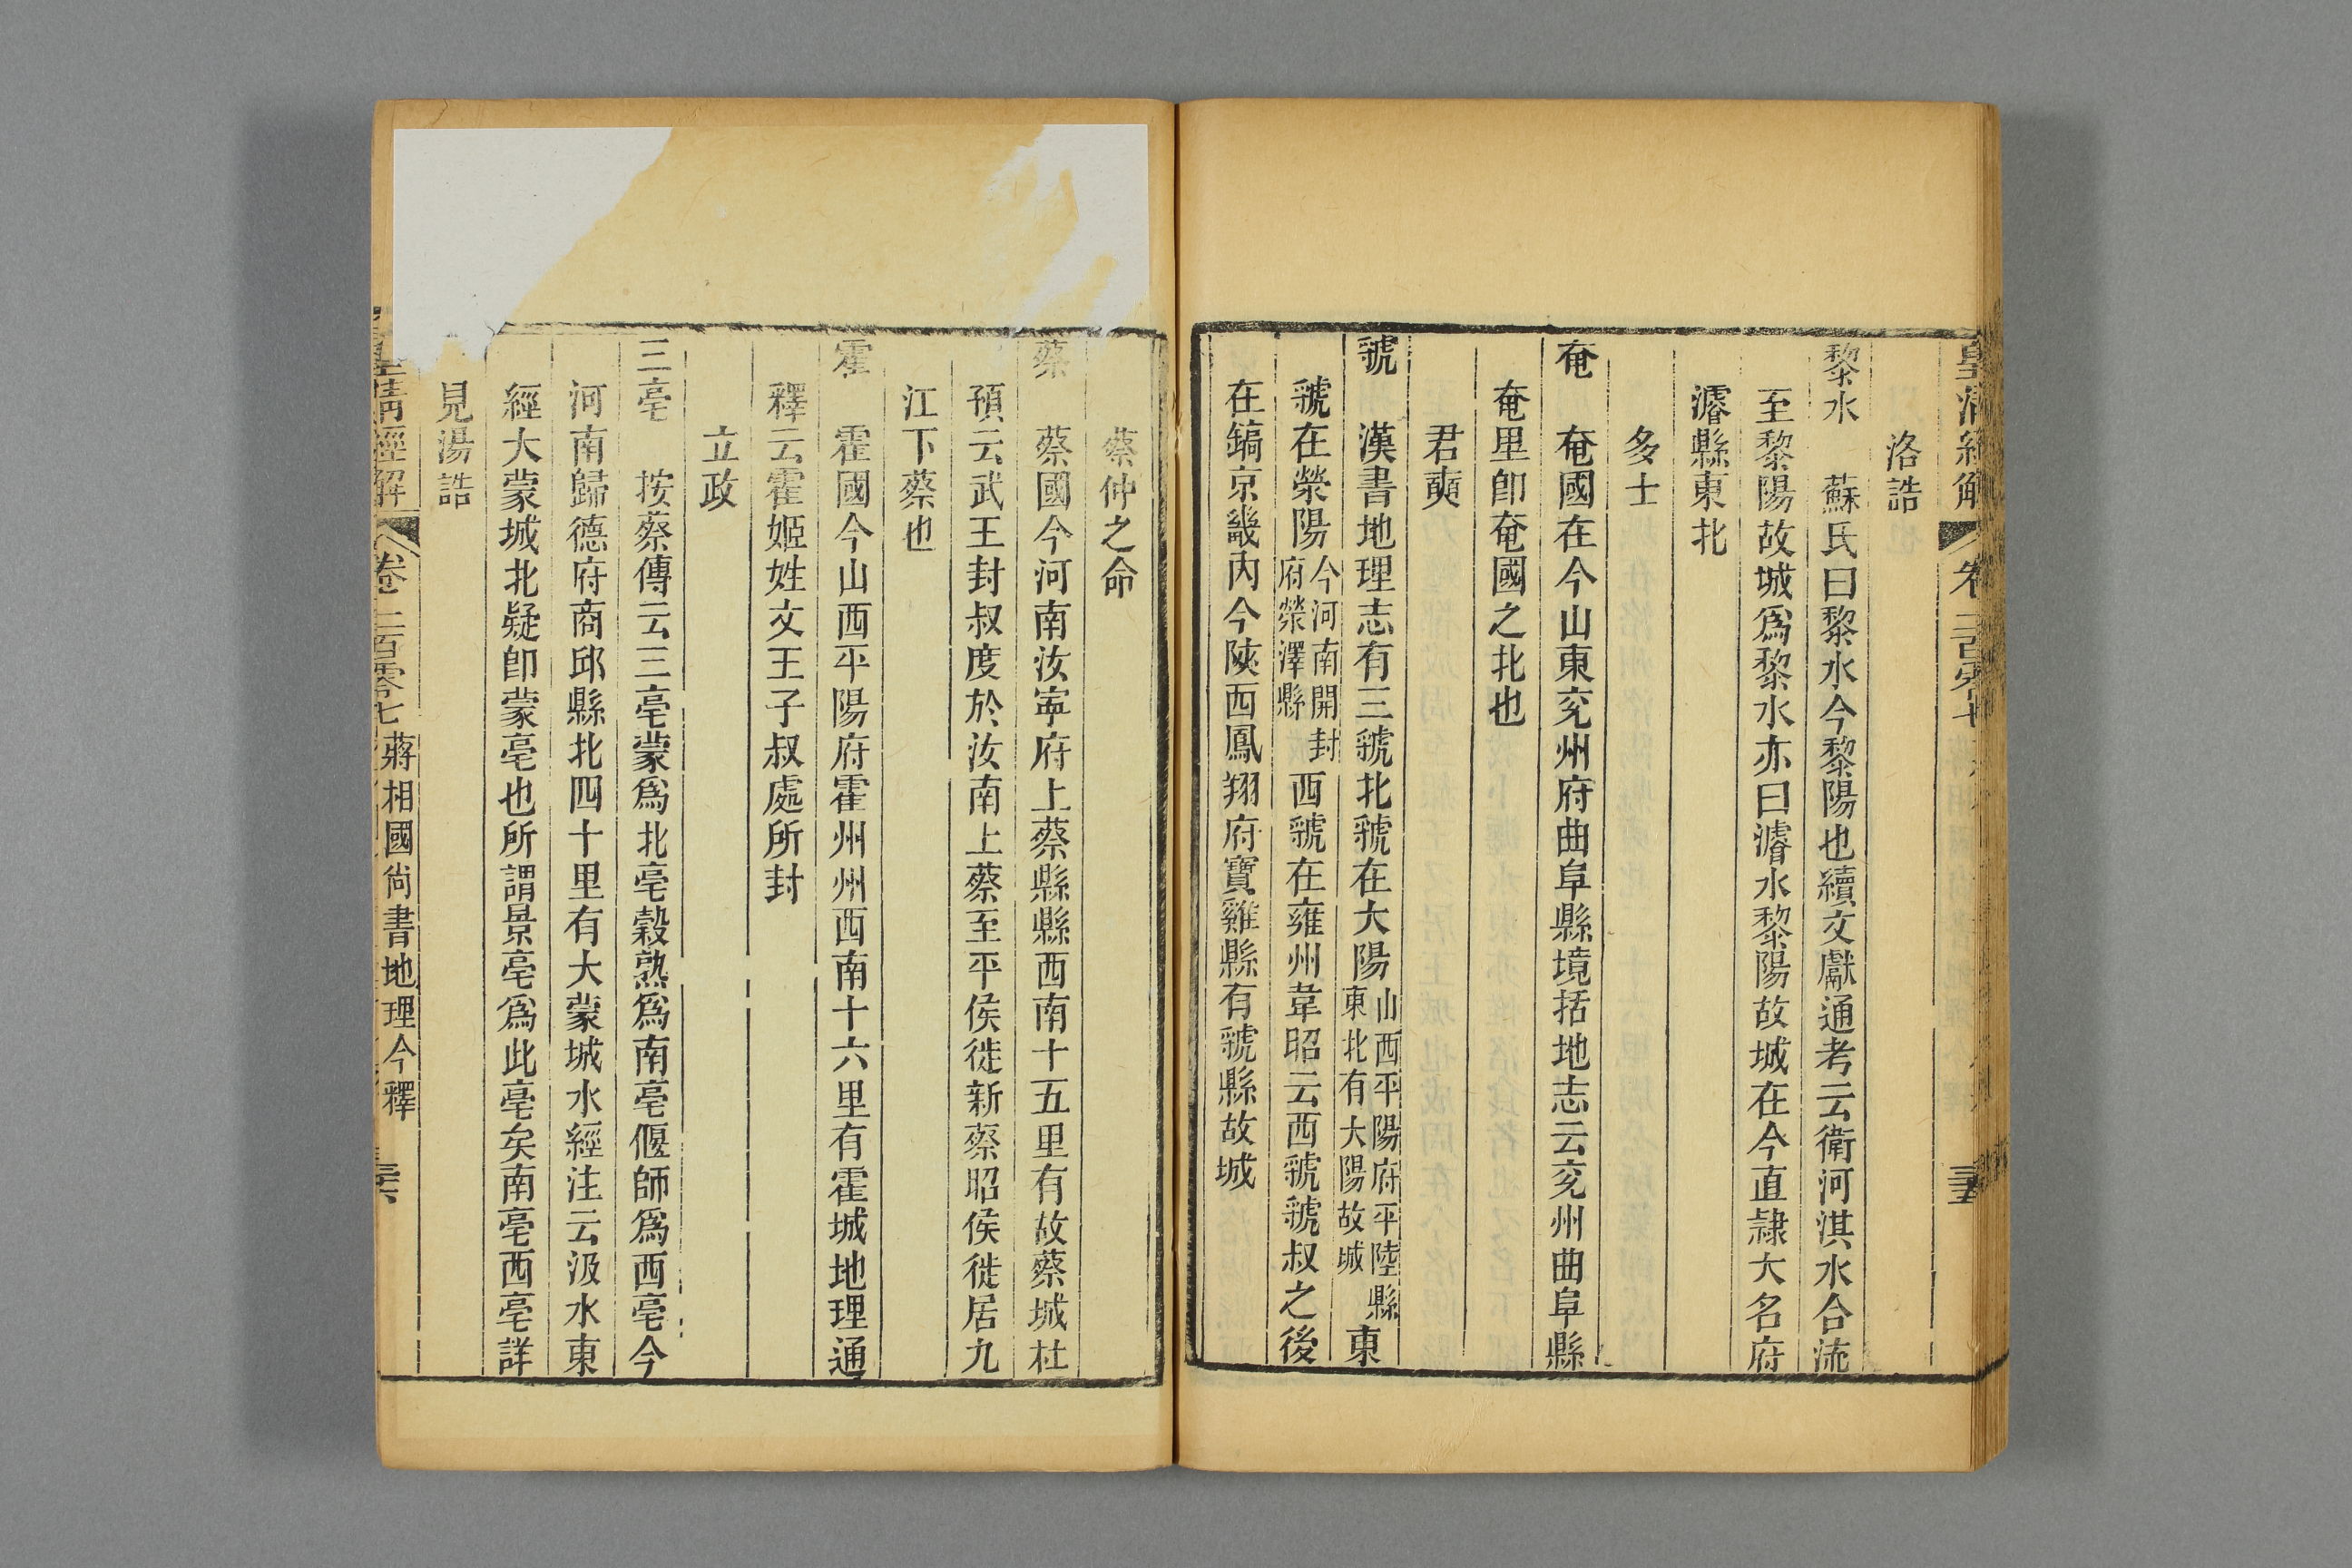 洛誥
黎水　蘇氏曰黎水今黎陽也續文獻通考云衛河淇水合流
至黎陽故城爲黎水亦曰濬水黎陽故城在今直隸大名府
濬縣東北
多士
奄　奄國在今山東兖州府曲阜縣境括地志云兖州曲阜縣
奄里卽奄國之北也
君奭
虢　漢書地理志有三虢北虢在大陽山西平陽府平陸縣東北有大陽故城東
虢在滎陽今河南開封府滎澤縣西虢在雍州韋昭云西虢虢叔之後
在鎬京畿內今陝西鳳翔府寶雞縣有虢縣故城
蔡仲之命
蔡　蔡國今河南汝寧府上蔡縣縣西南十五里有故蔡城杜
預云武王封叔度於汝南上蔡至平侯徙新蔡昭侯徙居九
江下蔡也
霍　霍國今山西平陽府霍州州西南十六里有霍城地理通
釋云霍姬姓文王子叔處所封
立政
三亳　按蔡傳云三亳蒙爲北亳穀熟爲南亳偃師爲西亳今
河南歸德府商邱縣北四十里有大蒙城水經注云汲水東
經大蒙城北疑卽蒙亳也所謂景亳爲此亳矣南亳西亳詳
見湯誥
皇清經解　卷二百零七　蔣相國尚書地理今釋　三六